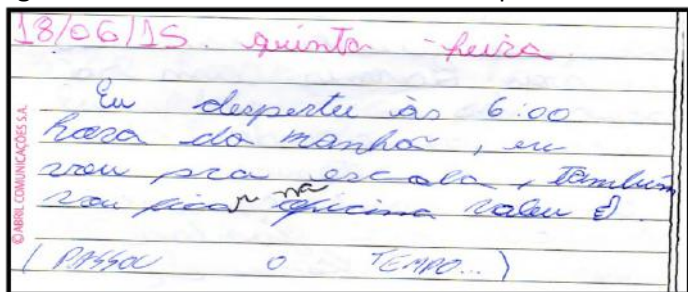 18/06/15. quinta - feira.
Eu desperter às 6:00
hora da manhã, eu
vou pra escola, também
vou ficar na oficina valeu
(PASSOU O TEMPO...)
©ABRIL COMUNICAÇÕES S.A.